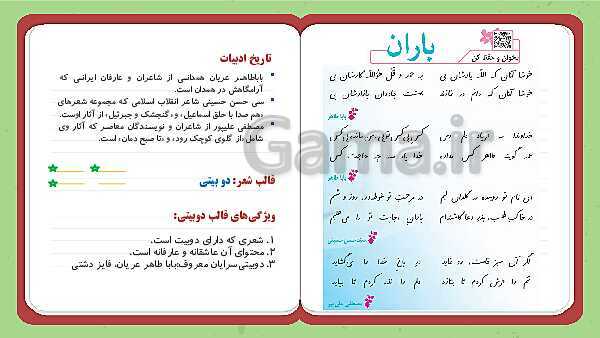 باران
بخوان و حفظ کن
خوشا آنان که الله یارشان بی
به حمد و قل هوالله کارشان بی
خوشا آنان که دائم در نمازند
بهشت جاودان بازارشان بی
بابا طاهر
بابا طاهر
ای نام تو روییده به گلدان لبم
در مرحمت تو غوطه‌ور، روز و شبم
سیدحسن حسینی
مصطفی علی‌پور
تاریخ ادبیات
باباطاهر عریان همدانی از شاعران و عارفان ایرانی که
آرامگاهش در همدان است.
سی حسن حسینی شاعر انقلاب اسلامی که مجموعه شعرهای
«هم صدا با حلق اسماعیل» و «گنجشک و جبرئیل» از آثار اوست.
مصطفی علیپور از شاعران و نویسندگان معاصر که آثار وی
شامل «از گلوی کوچک رود» و «تا صبح دمان» است.
قالب شعر: دو بیتی
ویژگی‌های قالب دوبیتی:
۱. شعری که دارای دوبیت است.
۲. محتوای آن عاشقانه و عارفانه است.
۳. دوبیتی‌سرایان معروف:بابا طاهر عریان، فایز دشتی
Gama.ir